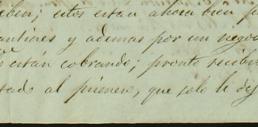 estos estan ahora bien
y ademas por un negocio
están cobrando; pronto recibi
tado al primero, que solo le dej